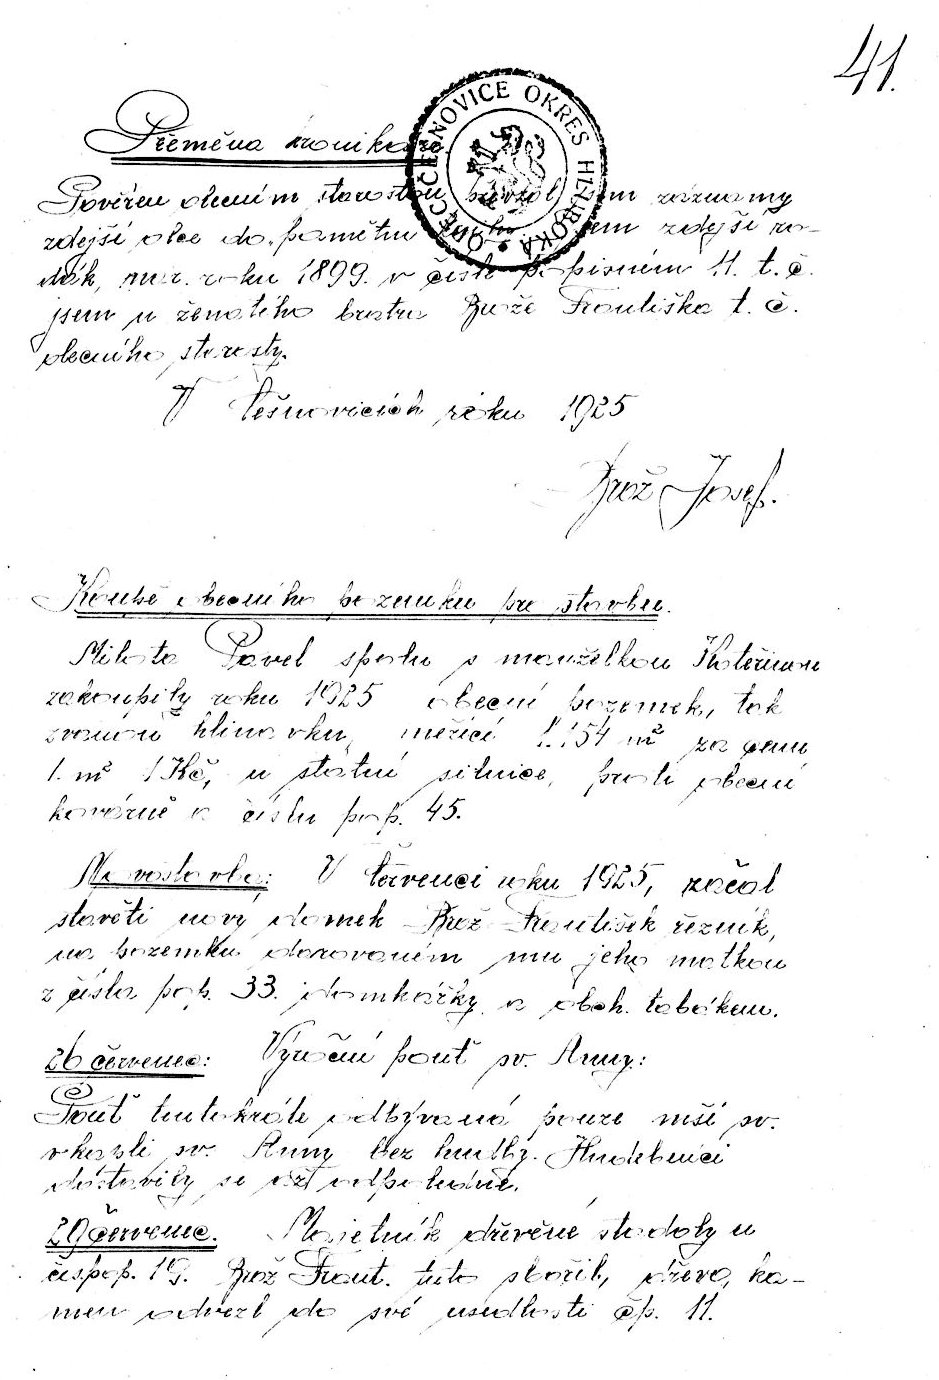 41.
Přeměna kronikáře.
OBEC ČEŠNOVICE OKRES HLUBOKÁ
Pověřen obecním starostou převzal jsem záznamy
zdejší obce do pamětní knihy. Jsem zdejší ro-
dák, nar. roku 1899. v čísle popisném 11. t. č.
jsem u ženatého bratra Brože Františka t. č.
obecního starosty.
V Češnovicích roku 1925
Brož Josef.
Koupě obecního pozemku pro stavbu.
Mikota Pavel spolu s manželkou Kateřinou
zakoupily roku 1925 obecní pozemek, tak
zvanou hlinovku, měřící 1.154 m² za cenu
1. m² 1 Kč, u státní silnice, proti obecní
kovárně a číslu pop. 45.
Novostavba: V červenci roku 1925, začal
stavěti nový domek Brož František řezník,
na pozemku darovaném mu jeho matkou
z čísla pop. 33. domkářky a obch. tabákem.
26 červenec: Výroční pouť sv. Anny:
Pouť tentokráte odbývaná pouze mší sv.
v kapli sv. Anny bez hudby. Hudebníci
dostavily se až odpoledne.
29 červenec. Majetník dřevěné stodoly u
čís. pop. 19. Brož Frant. tuto sbořil, dřevo, ka-
men odvezl do své usedlosti čp. 11.